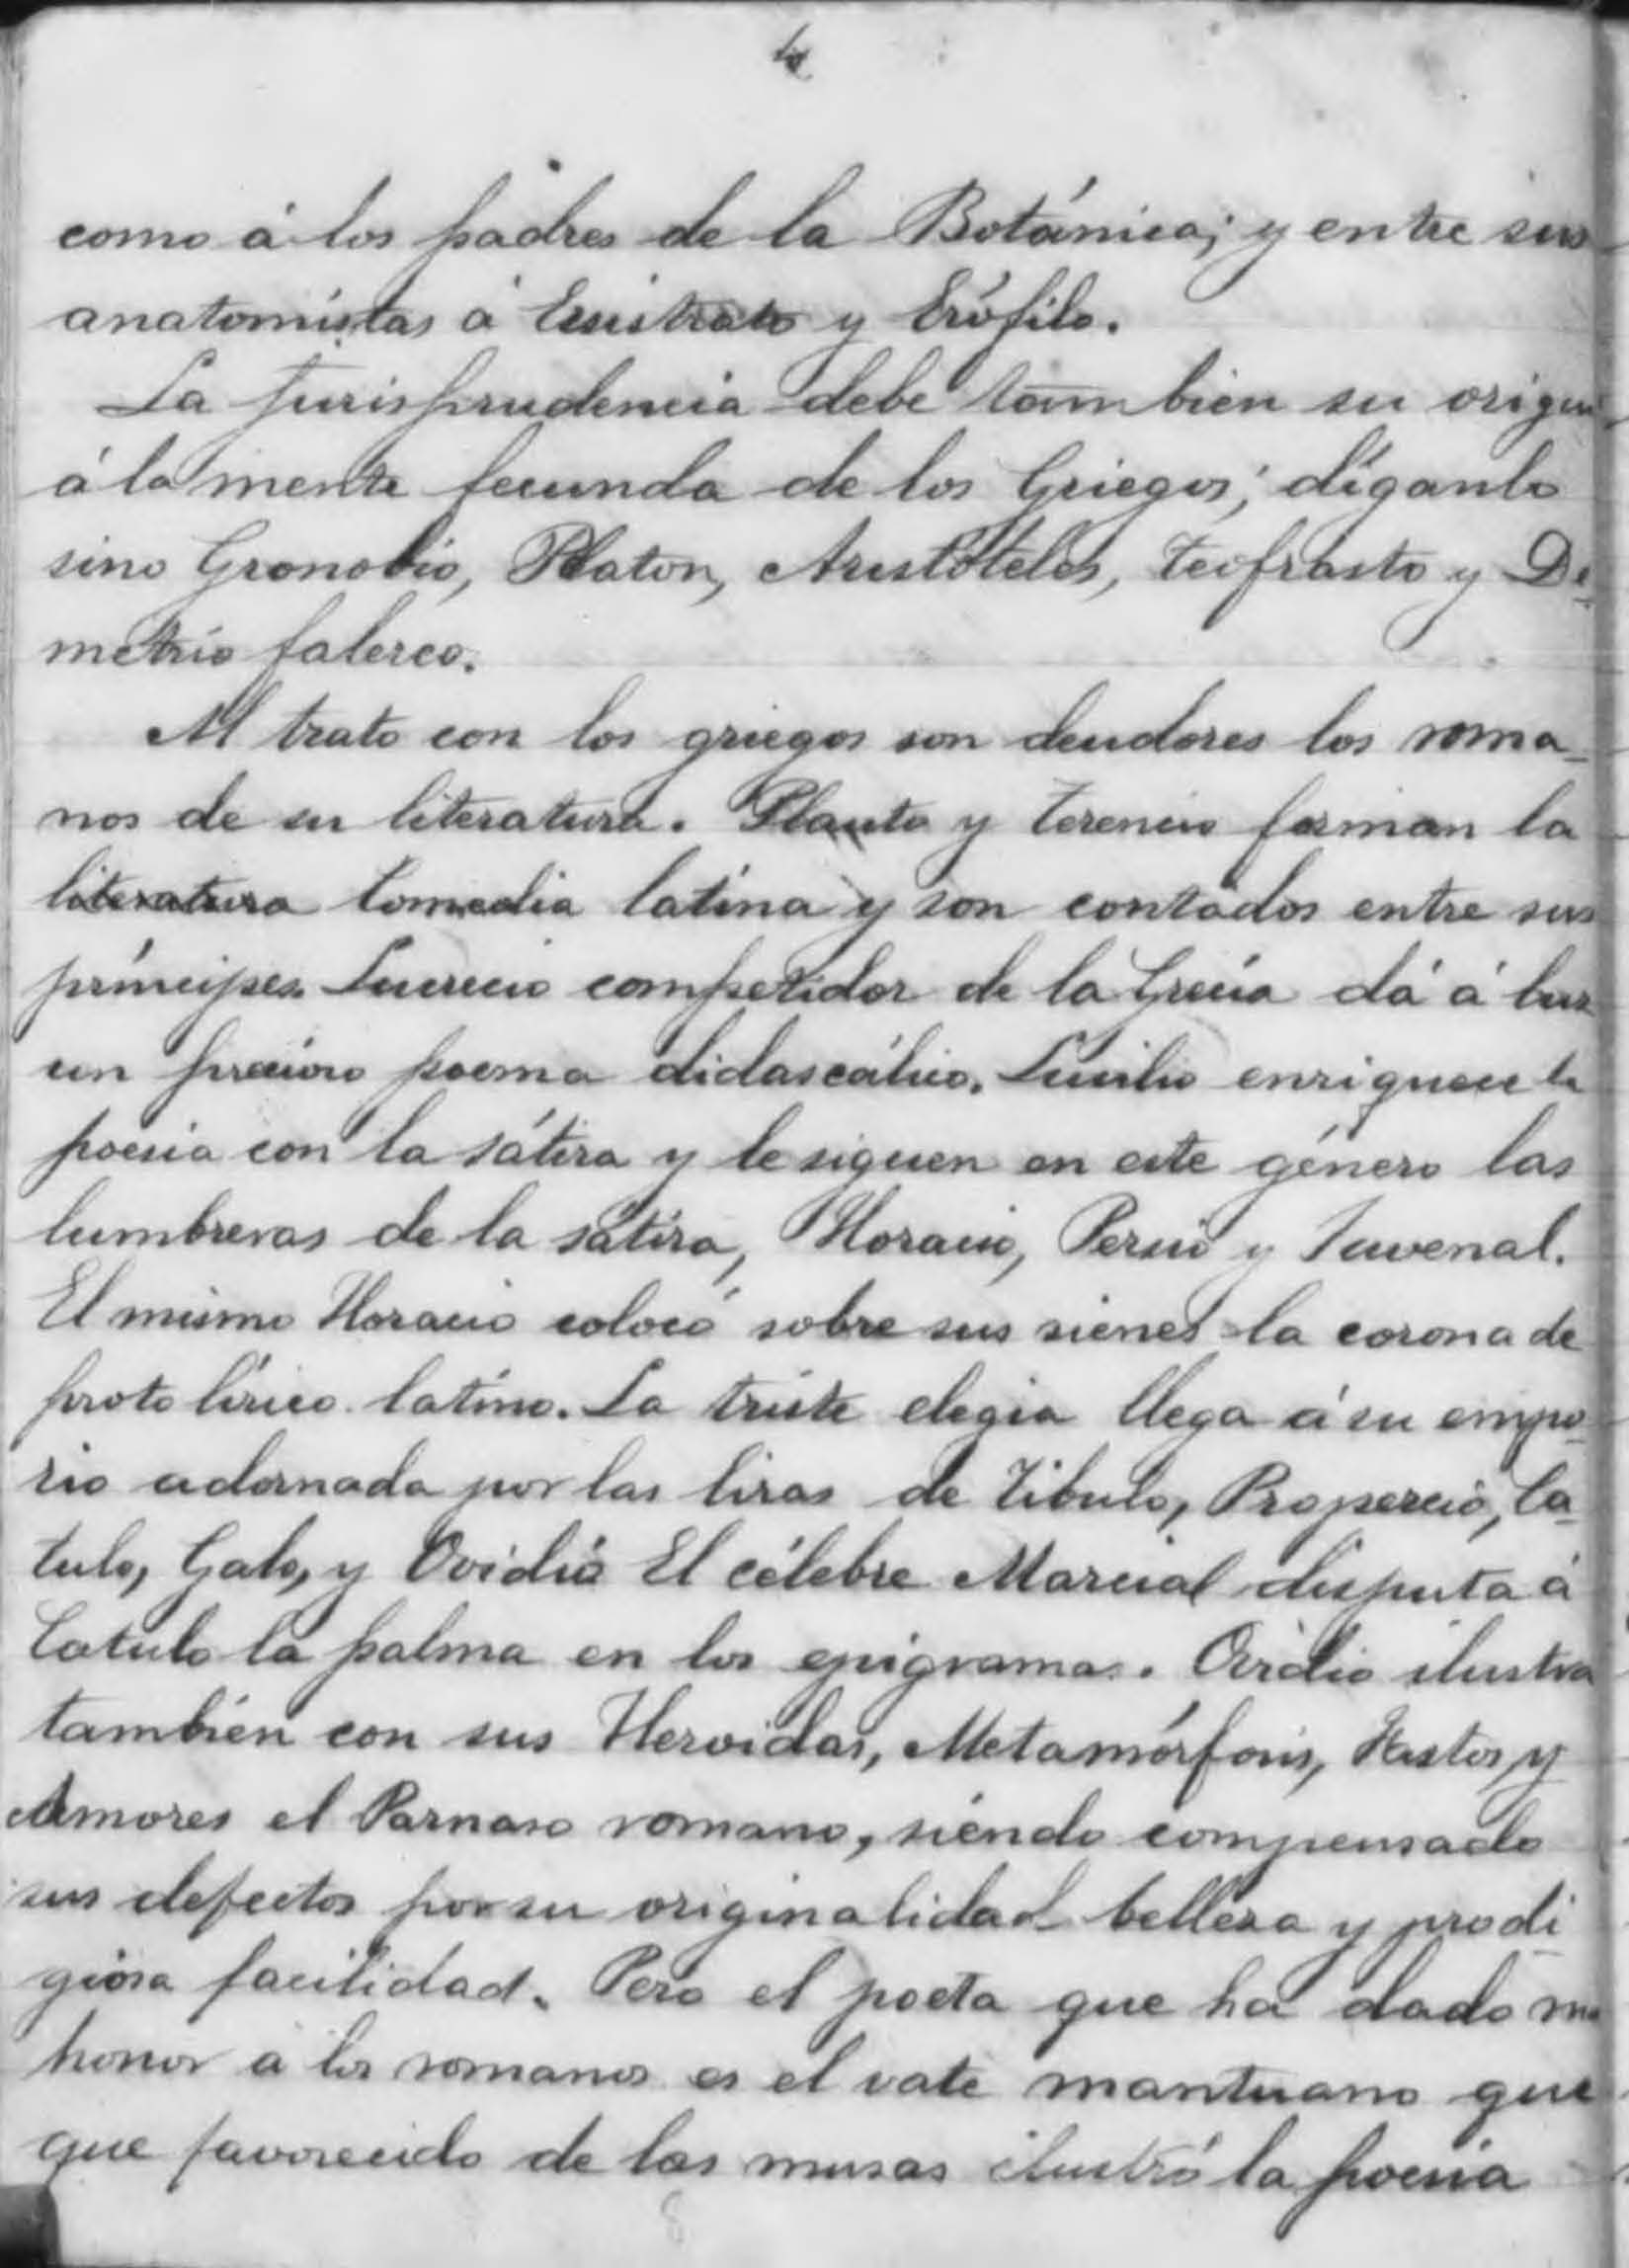 4
como á los padres de la Botánica; y entre sus
anatomistas á Erisistrato y Erófilo.
La Jurisprudencia debe tambien su origen
á la mente fecunda de los Griegos; díganlo
sino Gronobio, Platon, Aristóteles, Teofrasto y De-
metrio falereo.
Al trato con los griegos son deudores los roma-
nos de su literatura. Plauto y Terencio forman la
literatura Comedia latina y son contados entre sus
príncipes. Lucrecio competidor de la Grecia dá á luz
un precioso poema didascálico. Lucilio enriquece la
poesia con la sátira y le siguen en este género las
lumbreras de la sátira, Horacio, Persio y Juvenal.
El mismo Horacio colocó sobre sus sienes la corona de
proto lírico latino. La triste elegia llega á su empo-
rio adornada por las liras de Tibulo, Propercio, Ca-
tulo, Galo, y Ovidio El célebre Marcial disputa á
Catulo la palma en los epigramas. Ovidio ilustra
también con sus Heroidas, Metamórfosis, Fastos y
Amores el Parnaso romano, siendo compensado
sus defectos por su originalidad belleza y prodi-
giosa facilidad. Pero el poeta que ha dado
honor á los romanos es el vate mantuano que
que favorecido de las musas ilustró la poesia